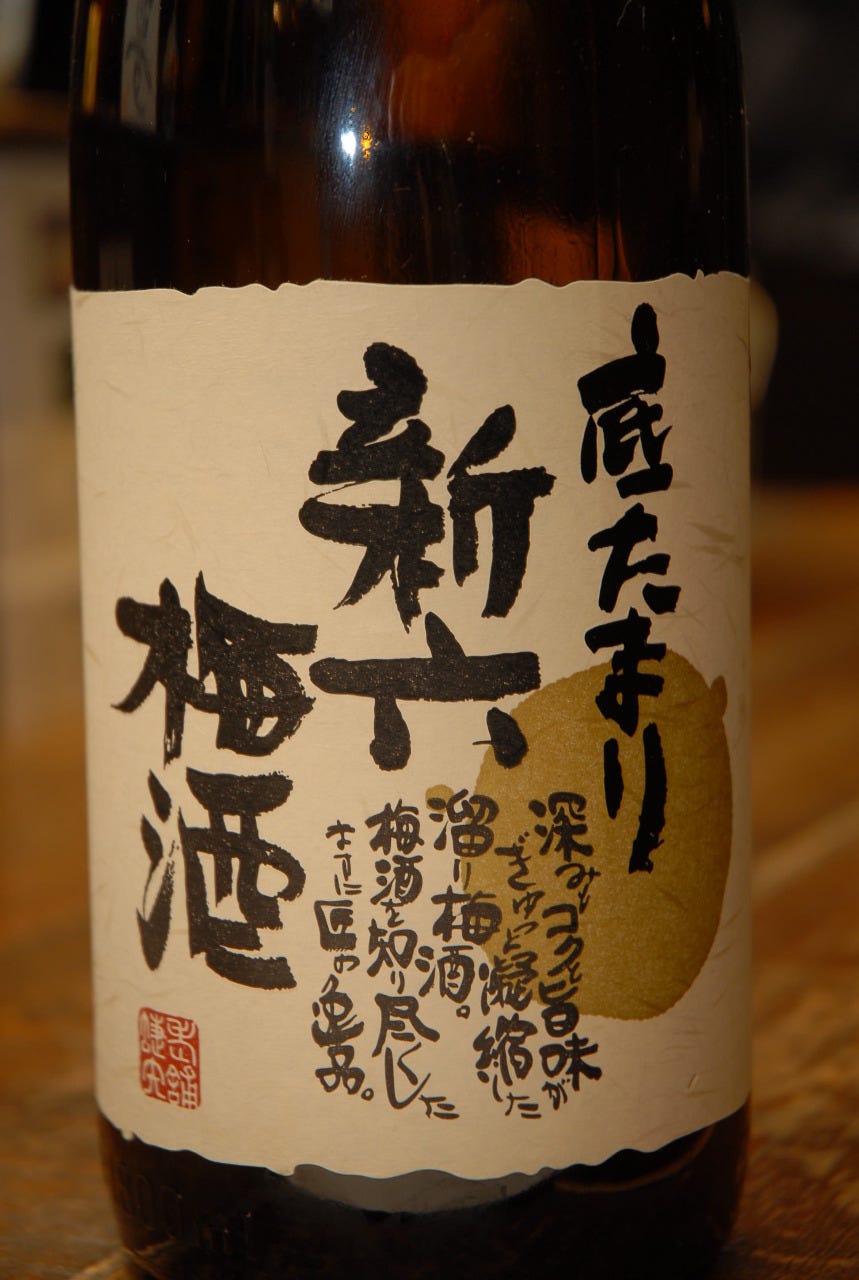 底たまり
新六
梅酒
深みとコクと旨味が
ぎゅっと凝縮した
溜り梅酒。
梅酒を知り尽くした
まさに匠の逸品。